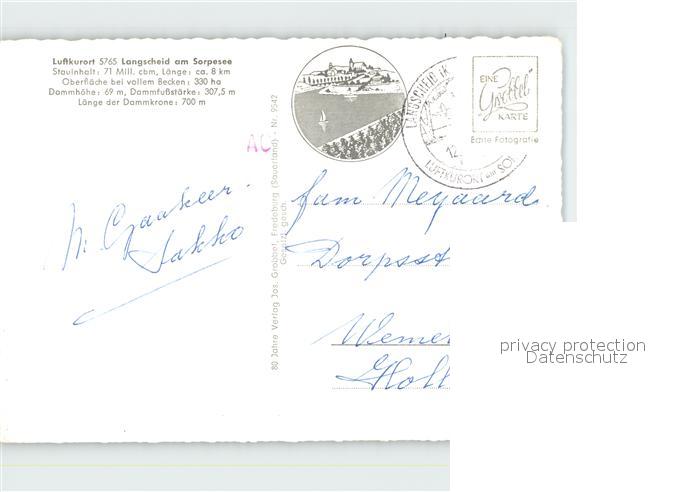 Luftkurort 5765 Langscheid am Sorpesee
Stauinhalt: 71 Mill. cbm, Länge: ca. 8 km
Oberfläche bei vollem Becken: 330 ha
Dammhöhe: 69 m, Dammfußstärke: 307,5 m
Länge der Dammkrone: 700 m
AC
80 Jahre Verlag Jos. Grobbel, Fredeburg (Sauerland) - Nr. 9542
Gesetzl. gesch.
LANGSCHEID
12
LUFTKURORT am SO
EINE
"Grobbel"
KARTE
Echte Fotografie
fam Meyaard.
Dorpsst
Wemel
Holl
Jakko
privacy protection
Datenschutz